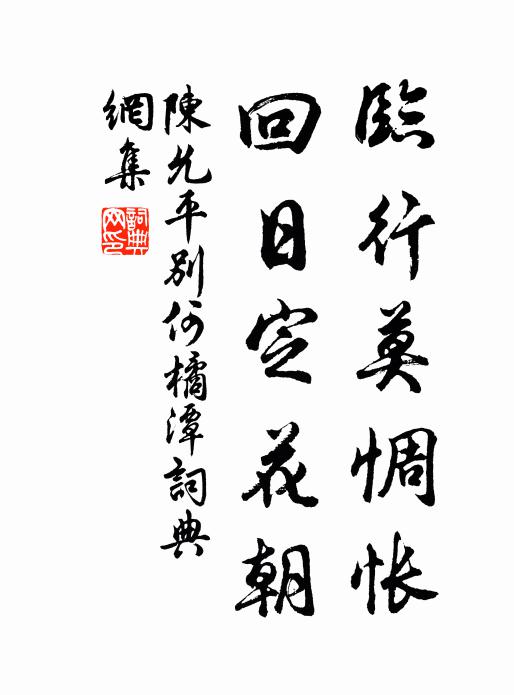 臨行莫惆悵
回日定花朝
陳允平別何橘潭詞典
網集
詞典
网印